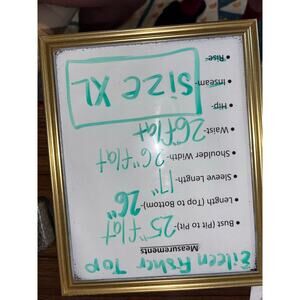 Eileen Fisher Top
Measurements
• Bust (Pit to Pit)- 25" flat
• Length (Top to Bottom)- 26"
• Sleeve Length- 17"
• Shoulder Width- 26" flat
• Waist- 26" flat
• Hip-
• Inseam-
• Rise-
Size XL